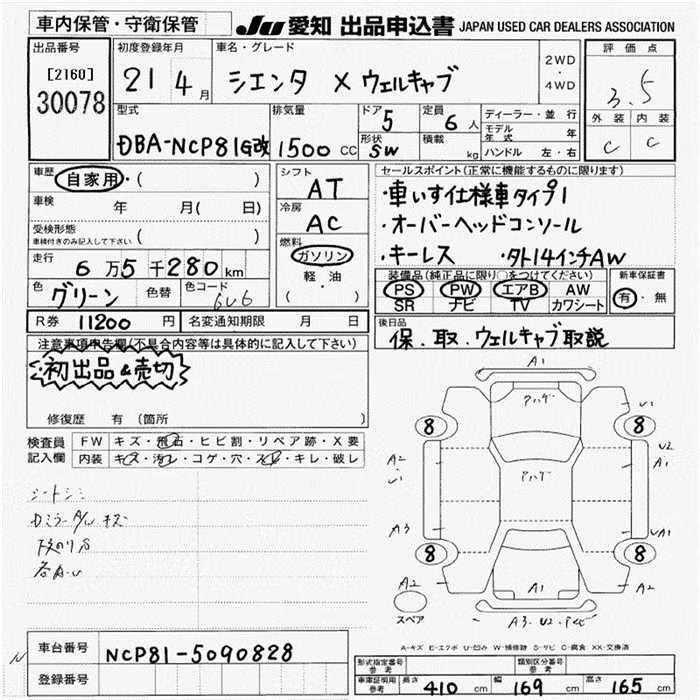 車内保管・守衛保管
JU 愛知 出品申込書 JAPAN USED CAR DEALERS ASSOCIATION
出品番号
[2160]
30078
初度登録年月
21 4月
車名・グレード
シエンタ X ウェルキャブ
2WD
・
4WD
評価点
3.5
外装 内装
C C
型式
DBA-NCP81G改
排気量
1500 CC
ドア 5
形状 SW
定員 6 人
積載 kg
ディーラー・並行
モデル年式 年
ハンドル 左・右
車歴 自家用・( )
車検 年 月( 日)
受検形態
車検付きのみ記入して下さい ( )
走行 6万5千280km
色 グリーン
色替
色コード 6V6
R券 11200 円 名変通知期限 月 日
シフト
AT
冷房
AC
燃料
ガソリン
軽・油
( )
セールスポイント(正常に機能するものに限ります)
・車いす仕様車タイプ1
・オーバーヘッドコンソール
・キーレス ・タト14インチAW
装備品(純正品に限り○をつけてください)
PS PW エアB AW
SR ナビ TV カワシート
新車保証書
有・無
後日品
保.取.ウェルキャブ取説
注意事項申告欄(不具合内容等は具体的に記入して下さい)
・初出品&売切
修復歴 有 (箇所 )
検査員
記入欄
FW キズ・飛石・ヒビ割・リペア跡・X要
内装 キズ・汚レ・コゲ・穴・スレ・キレ・破レ
シートシミ
DミラーA/U キズ
各A・U
A1
アハゲ
U1
8
8
A2
U1
U2
A1
アハゲ
A3
UA1
8
8
A2
A1
A2
スペア
A3.U2.
A-キズ E-エクボ U-凹み W-補修跡 S-サビ C-腐食 XX-交換済
車台番号 NCP81-5090828
登録番号
形式指定番号
参考
類別区分番号
参考
車庫証明用
参考
長さ 410 cm 幅 169 cm 高さ 165 cm